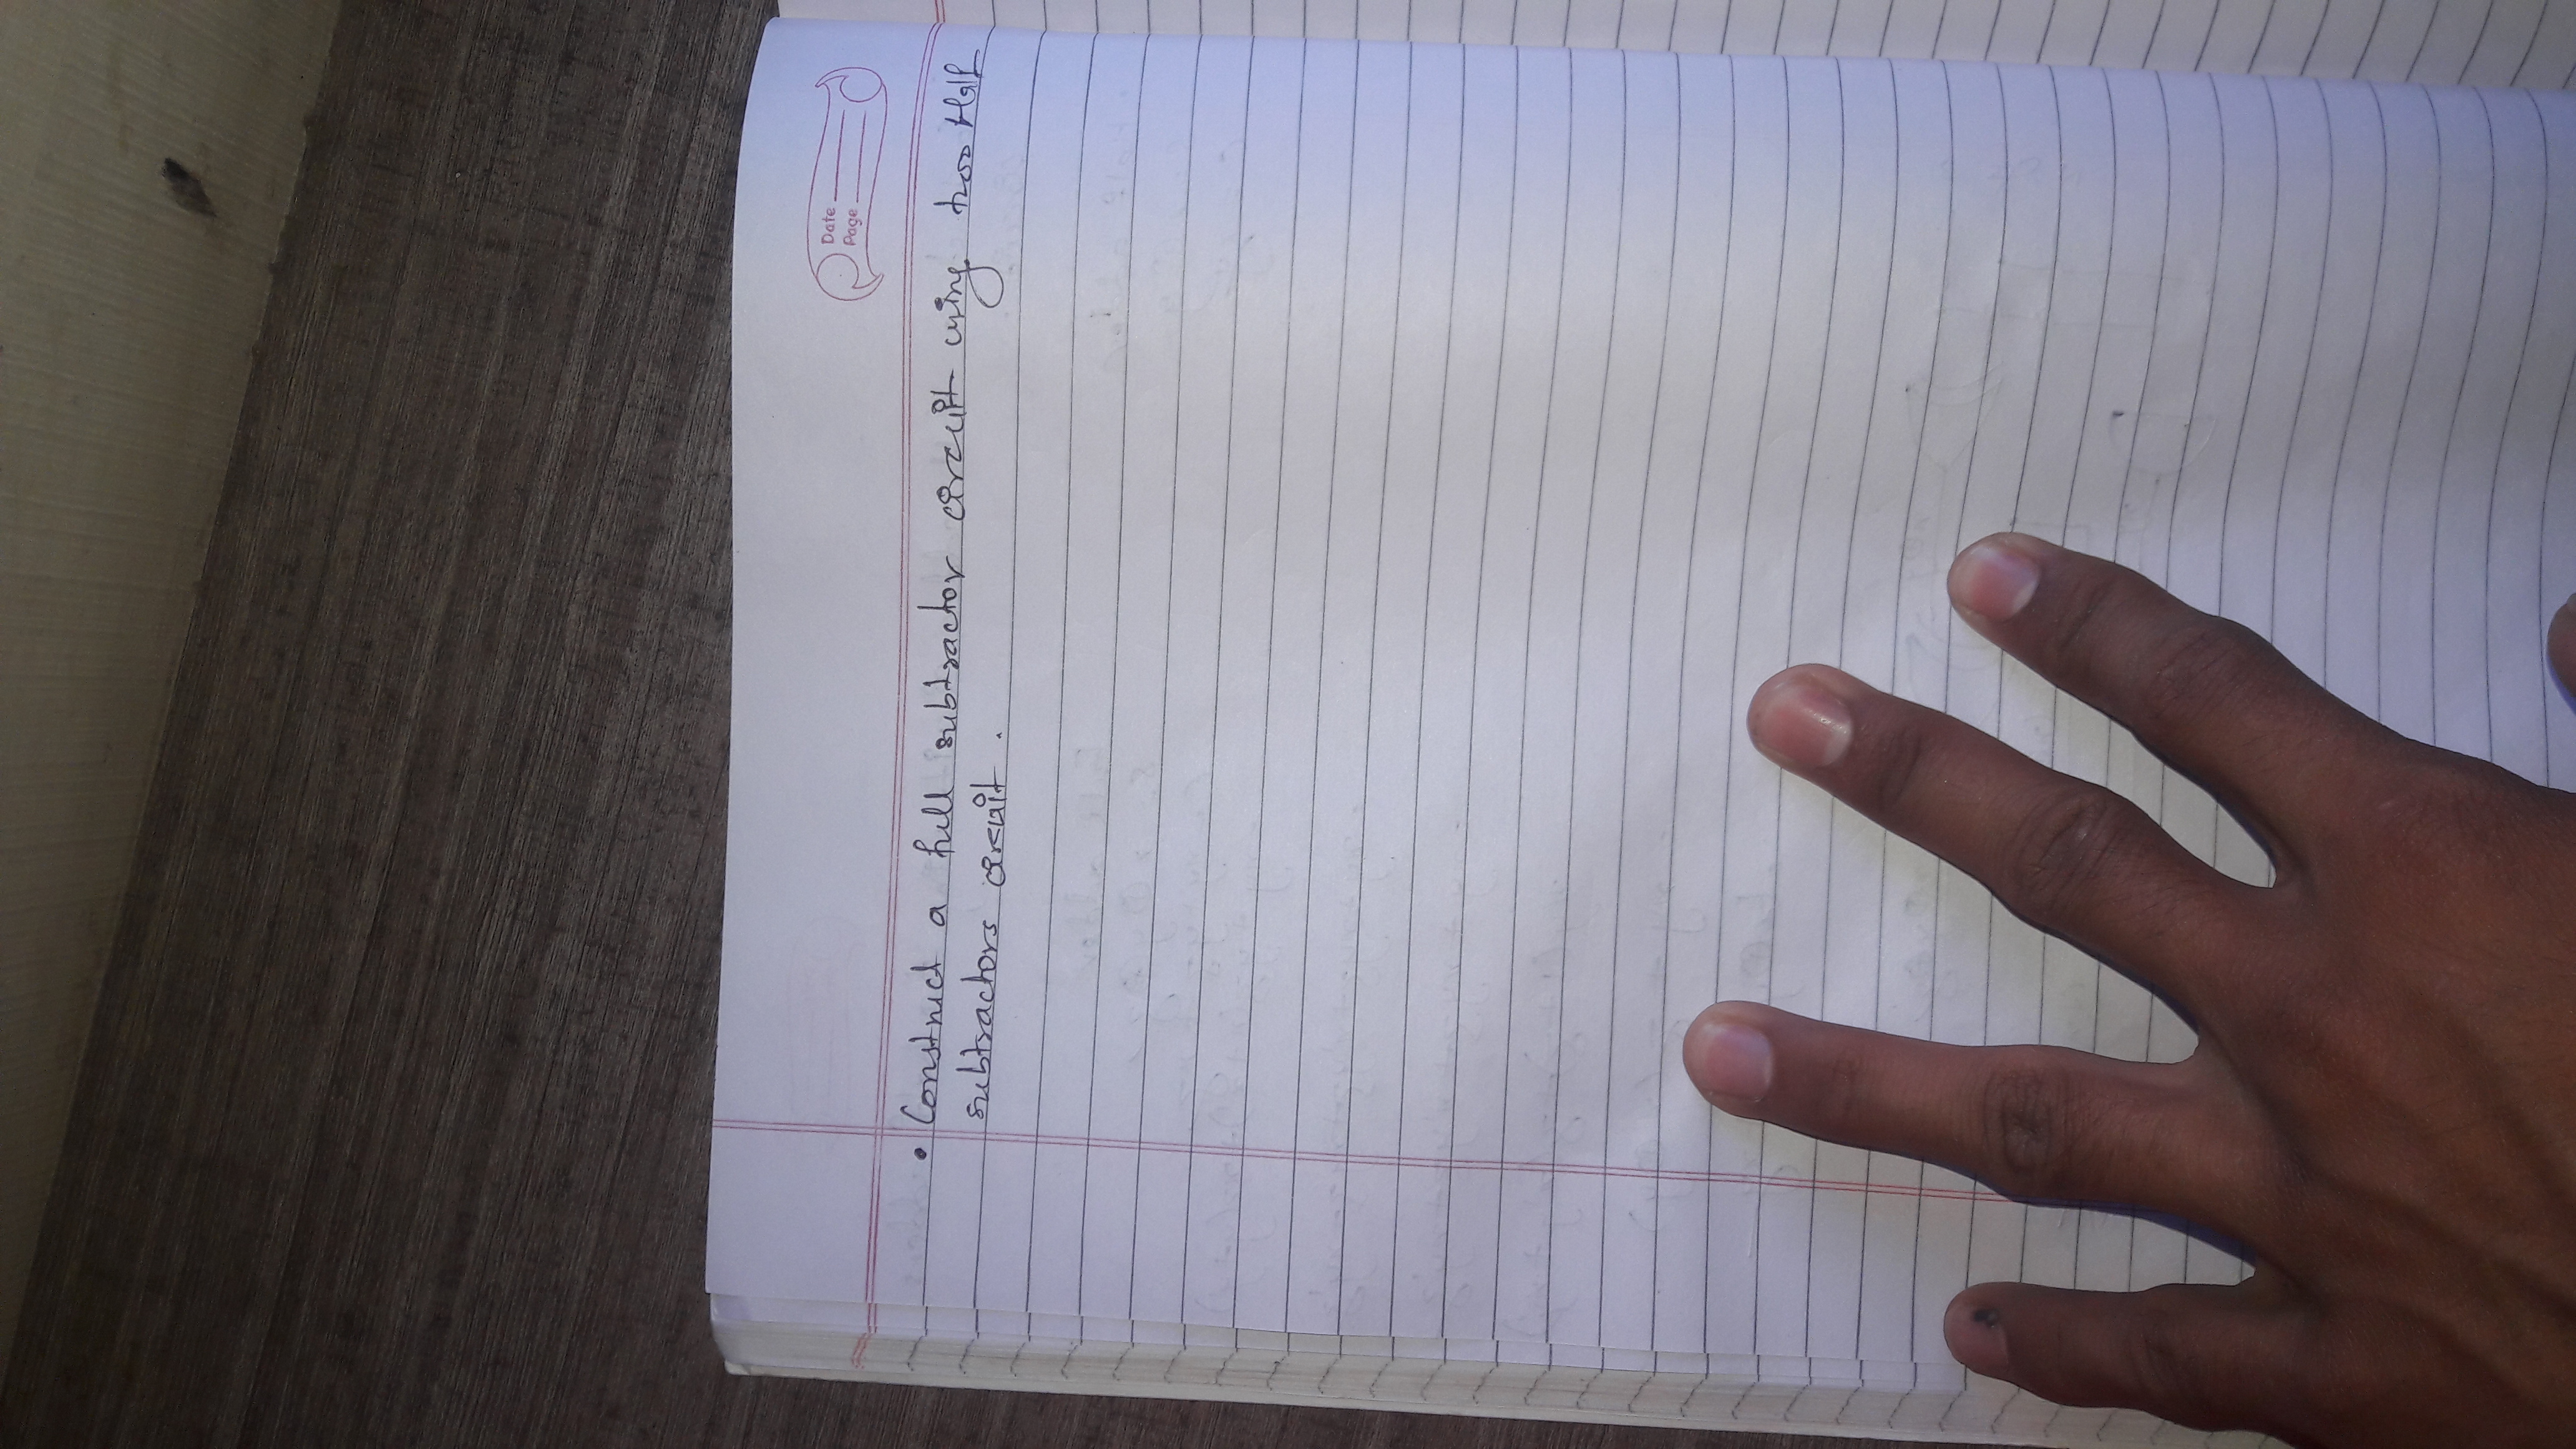 Date
Page
• Construct a full subtractor circuit using two Half
subtractors circuit.